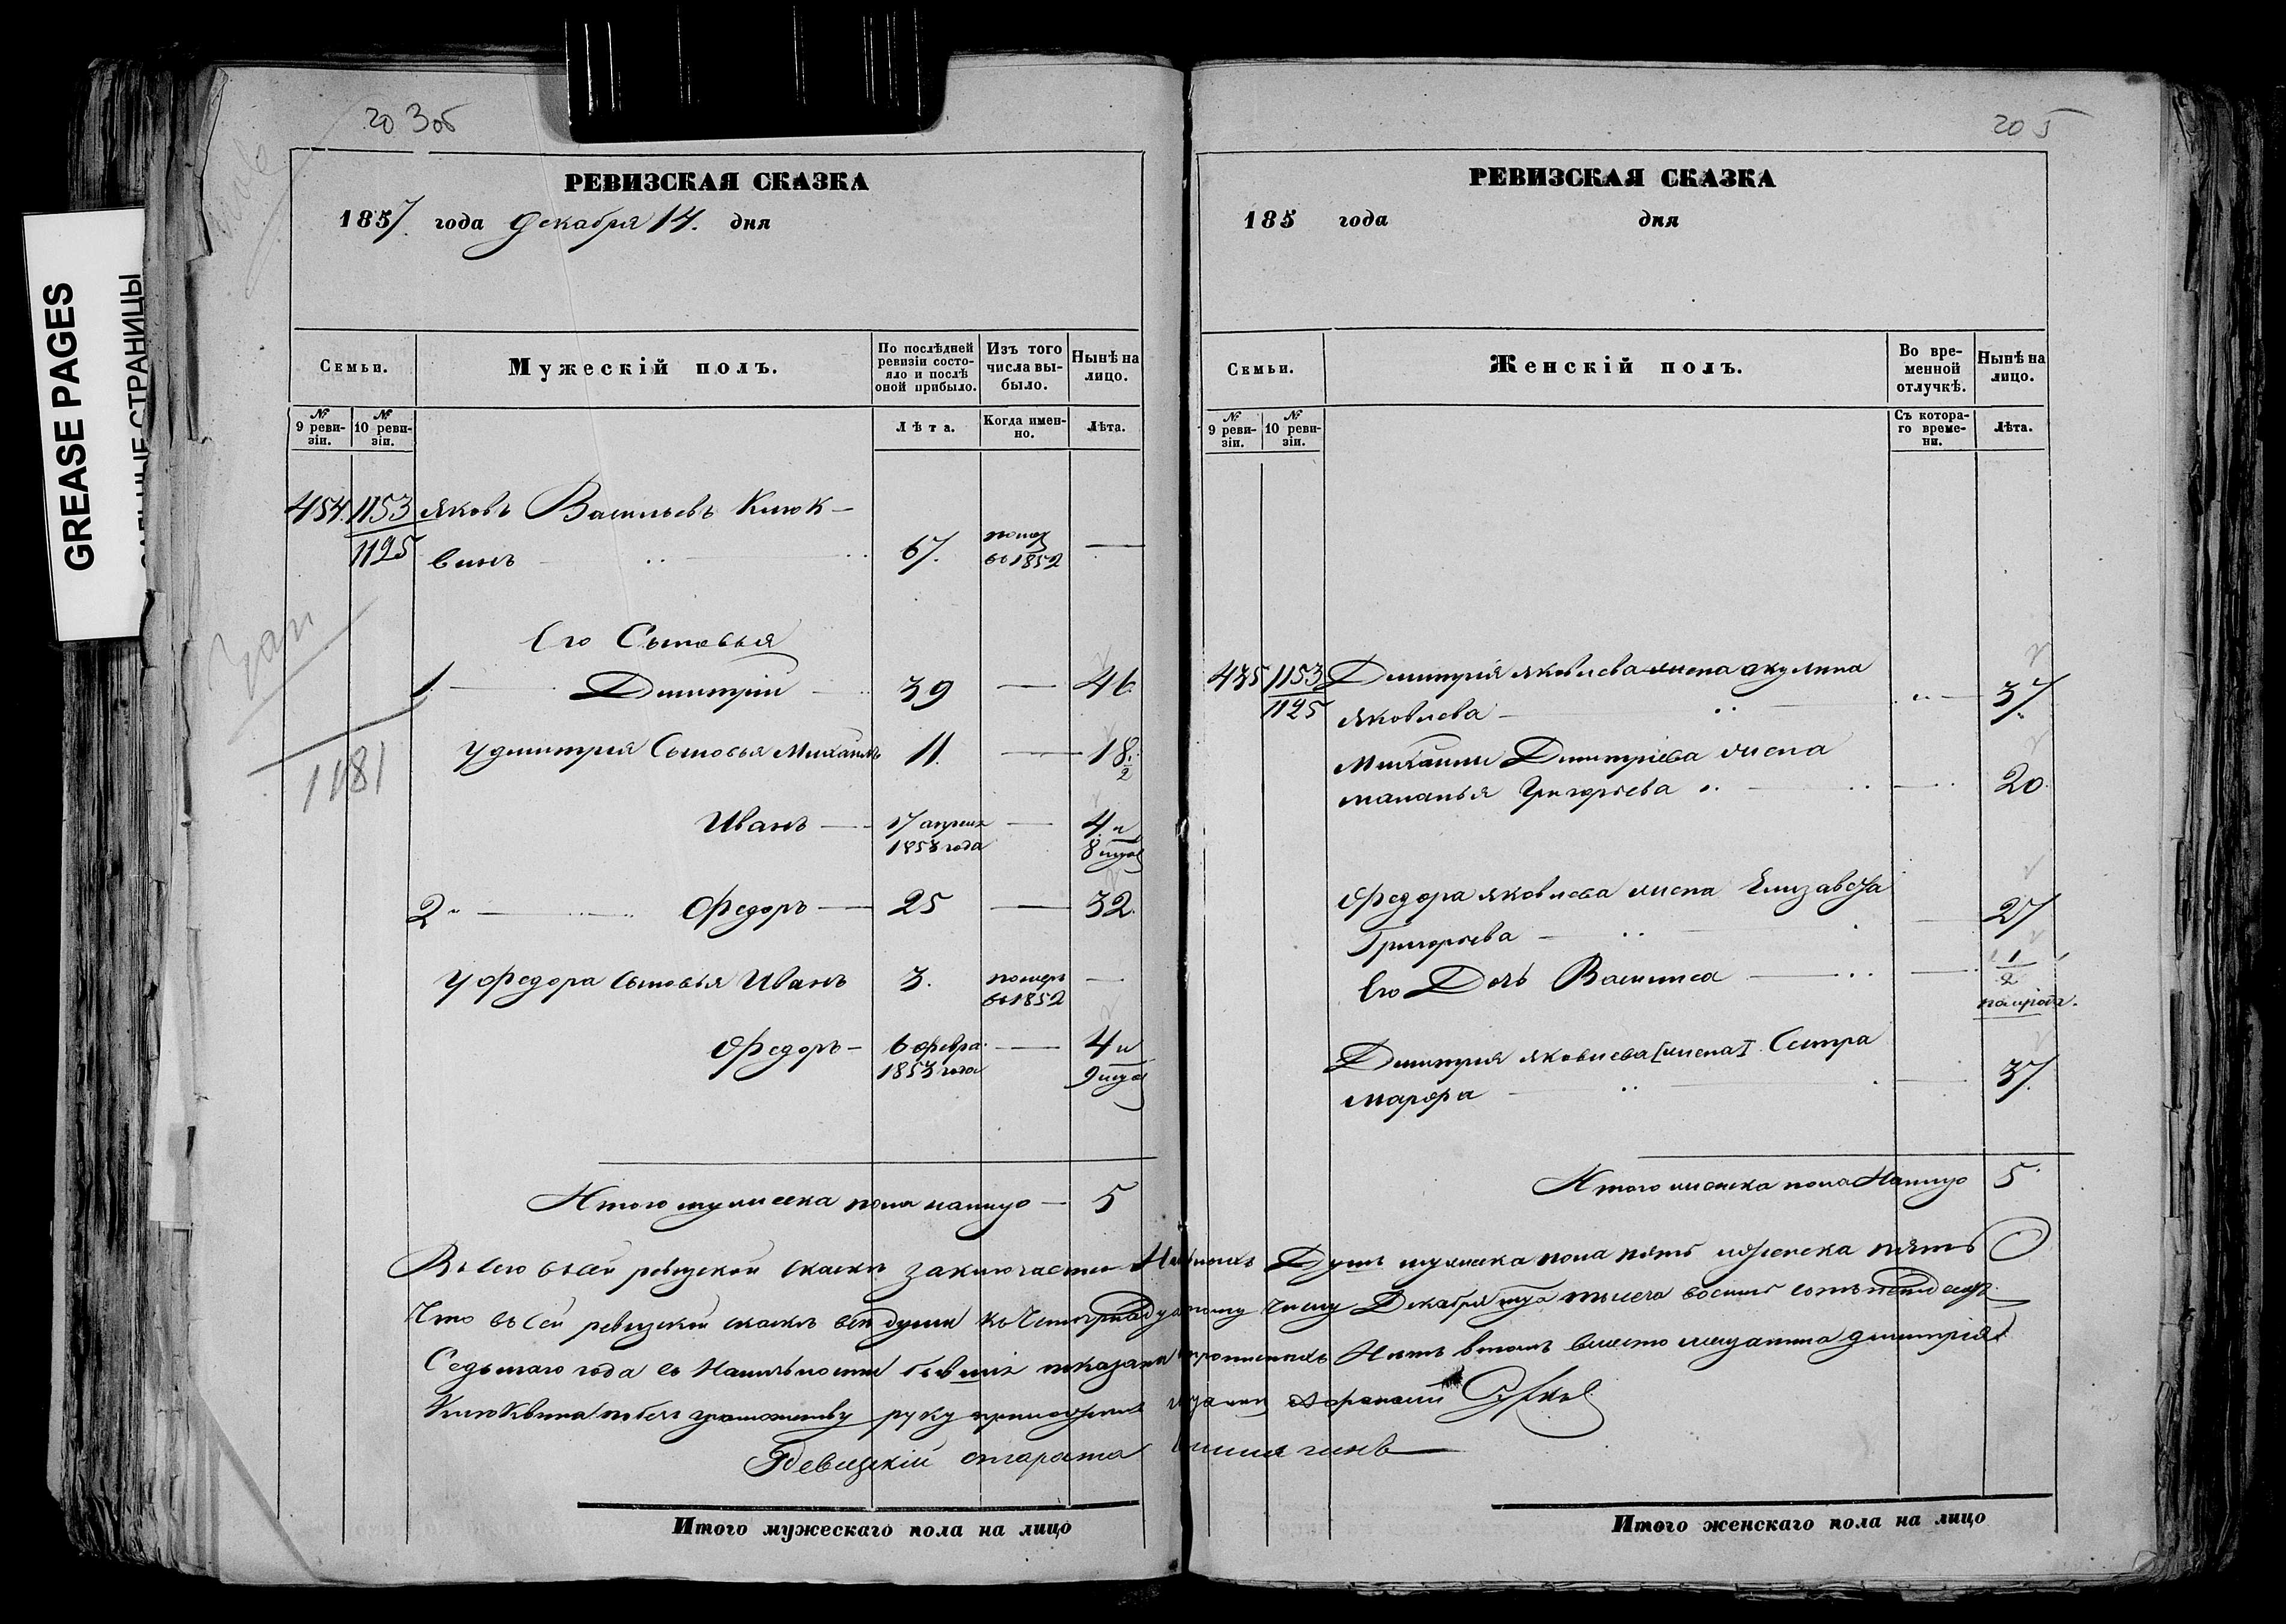 GREASE PAGES
203об
РЕВИЗСКАЯ СКАЗКА
1857 года Декабря 14. дня
Семьи.
Мужескій полъ.
По послѣдней ревизіи состояло и послѣ оной прибыло.
Изъ того числа выбыло.
Нынѣ на лицо.
№ 9 ревизіи.
№ 10 ревизіи.
Лѣта.
Когда именно.
Лѣта.
454. 1153 Яковъ Васильевъ Клюк-
1125 винъ 67. —
въ 1852
Его Сыновья
1. Димитрій 39 — 46.
У Димитрия Сыновья Михаилъ 11. — 18 1/2
Иванъ — 17 апреля — 4. и
1853 года 8 
2 Федоръ — 25 — 32.
У Федора Сыновья Иванъ 3. померъ —
въ 1852
Федоръ — 6 февра. — 4 и
1853 года 9
Итого мужеска пола налицо — 5
Зап
1181
205
РЕВИЗСКАЯ СКАЗКА
185 года дня
Семьи.
Женскій полъ.
Во временной отлучкѣ.
Нынѣ на лицо.
№ 9 ревизіи.
№ 10 ревизіи.
Съ котораго времени.
Лѣта.
435 1153 Димитрія Яковлева жена Акулина
1125 Яковлева — 37.
Михаилы Димитріева жена
Маланья Григорьева 20.
Федора Яковлева жена Елизавета
Григорьева — 27
Его Дочь Васи­лиса 1/2
Димитрия Яковлева [жена] Сестра
Марфа 37.
Итого женска пола Налицо 5
Всего въ сей ревизской сказкѣ заключается Наличныхъ Душъ мужеска пола пять и женска пять
Что въ сей ревизской сказкѣ все души къ Четырнадцатому числу Декабря тысеча восемь сотъ
Седьмаго года въ Наличности бывшия показаны прописныхъ Нетъ в томъ вместо мещанина Димитрія
Клюквина по безграмотству руку приложилъ
Ревизскій староста
Итого мужескаго пола на лицо
Итого женскаго пола на лицо